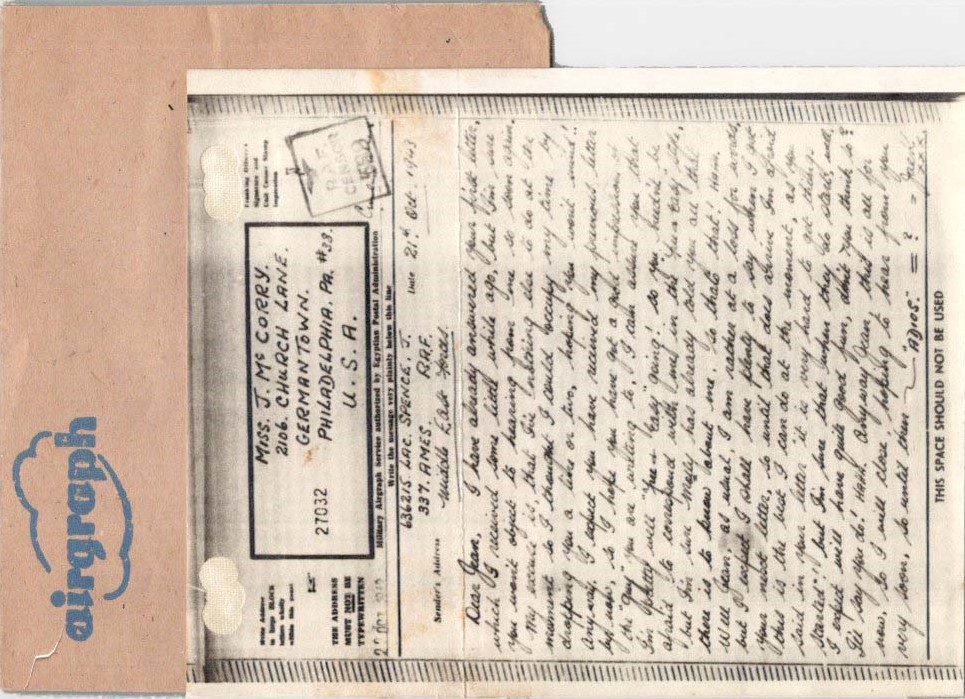 airgraph
Write Address
in large BLOCK
letters wholly
within this panel
THE ADDRESS
MUST NOT BE
TYPEWRITTEN
MISS. J. Mc CORRY.
2106. CHURCH LANE.
GERMANTOWN.
PHILADELPHIA, PA. #38.
U. S. A.
27032
Examining Officer's
Signature and
Unit Censor Stamp
Impression
R.A.F.
CENSOR
Military Airgraph Service authorized by Egyptian Postal Administration
Write the message very plainly below this line
Sender's Address
636215 L.A.C. SPENCE, J.
337. A.M.E.S. R.A.F.
Middle East Forces.
Date 21st Oct. 1943
Dear Jean, I have already answered your first letter,
which I received some little while ago, but I'm sure
you won't object to hearing from me so soon again.
My excuse is, that I've nothing else to do at the
moment so I thought I could occupy my time by
dropping you a line or two, hoping you won't mind!
Anyway I expect you have received my previous letter
by now, so I hope you have got a good impression of
the "guy" you are writing to, I can assure you that
I'm pretty well "free & easy" going! so you needn't be
afraid to correspond with me, in the "free & easy" style,
but I'm sure Mary has already told you all that
there is to know about me, so that's that! Hum.
Well Jean, as usual, I am rather at a loss for words,
but I expect I shall have plenty to say when I get
your next letter, so until that does arrive I'm afraid
this is the best I can do at the moment, as you
said in your letter it is very hard to get things
"started", but I'm sure that when they do start, well,
I expect we'll have quite good fun, don't you think so?
I'll say you do! HaHa. Anyway Jean, this is all for
now, so I will close, hoping to hear from you
very soon, so until then — "ADIOS." = ? = Jack
xxx
THIS SPACE SHOULD NOT BE USED